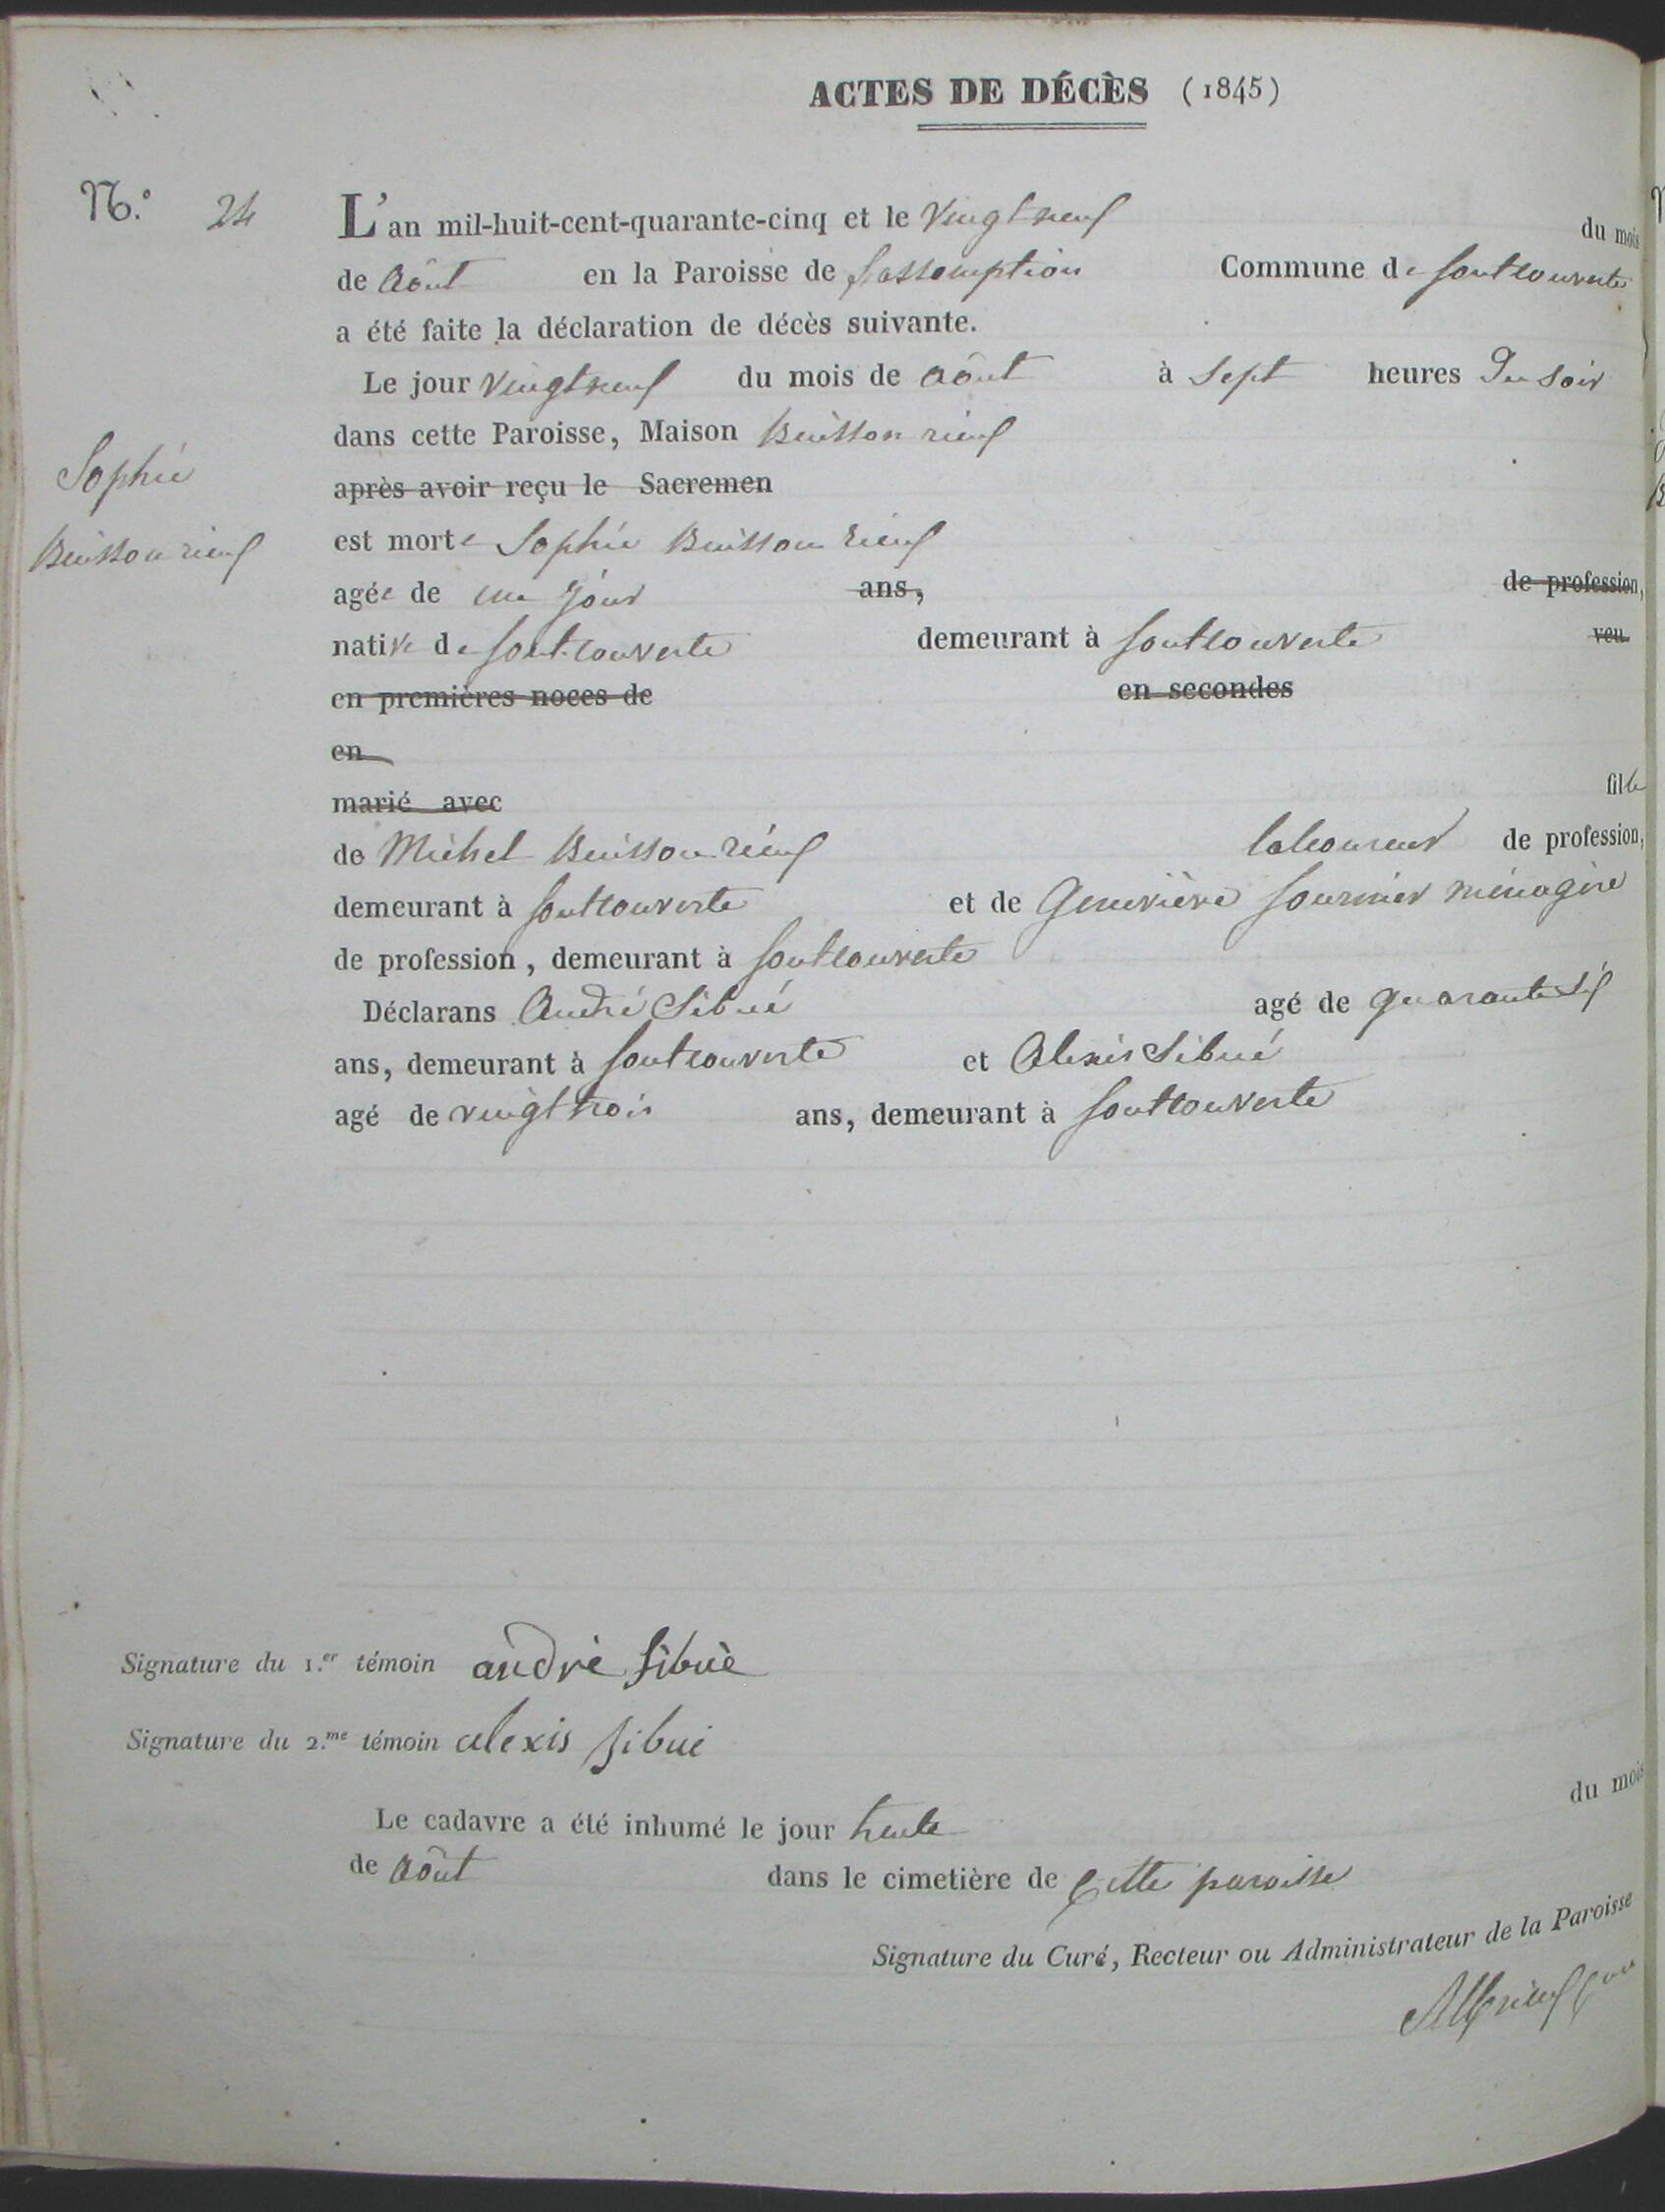 ACTES DE DÉCÈS (1845)
N.º 24
L'an mil-huit-cent-quarante-cinq et le vingt neuf du mois
de Août en la Paroisse de l'assomption Commune de fontcouverte
a été faite la déclaration de décès suivante.
Le jour vingt neuf du mois de Août à Sept heures Du Soir
dans cette Paroisse, Maison Buisson rieuf
après avoir reçu le Sacremen
Sophie
Buisson rieuf
est morte Sophie Buisson rieuf
agée de un jour ans, de profession,
native de fontcouverte demeurant à fontcouverte veu
en premières noces de en secondes
en
marié avec fille
de Michel Buisson rieuf laboureur de profession,
demeurant à fontcouverte et de Geneviève fournier ménagère
de profession, demeurant à fontcouverte
Déclarans André Sibué agé de quarante six
ans, demeurant à fontcouverte et Alexis Sibué
agé de vingt trois ans, demeurant à fontcouverte
Signature du 1.er témoin andré Sibué
Signature du 2.me témoin alexis Sibué
Le cadavre a été inhumé le jour trente du mois
de Août dans le cimetière de Cette paroisse
Signature du Curé, Recteur ou Administrateur de la Paroisse